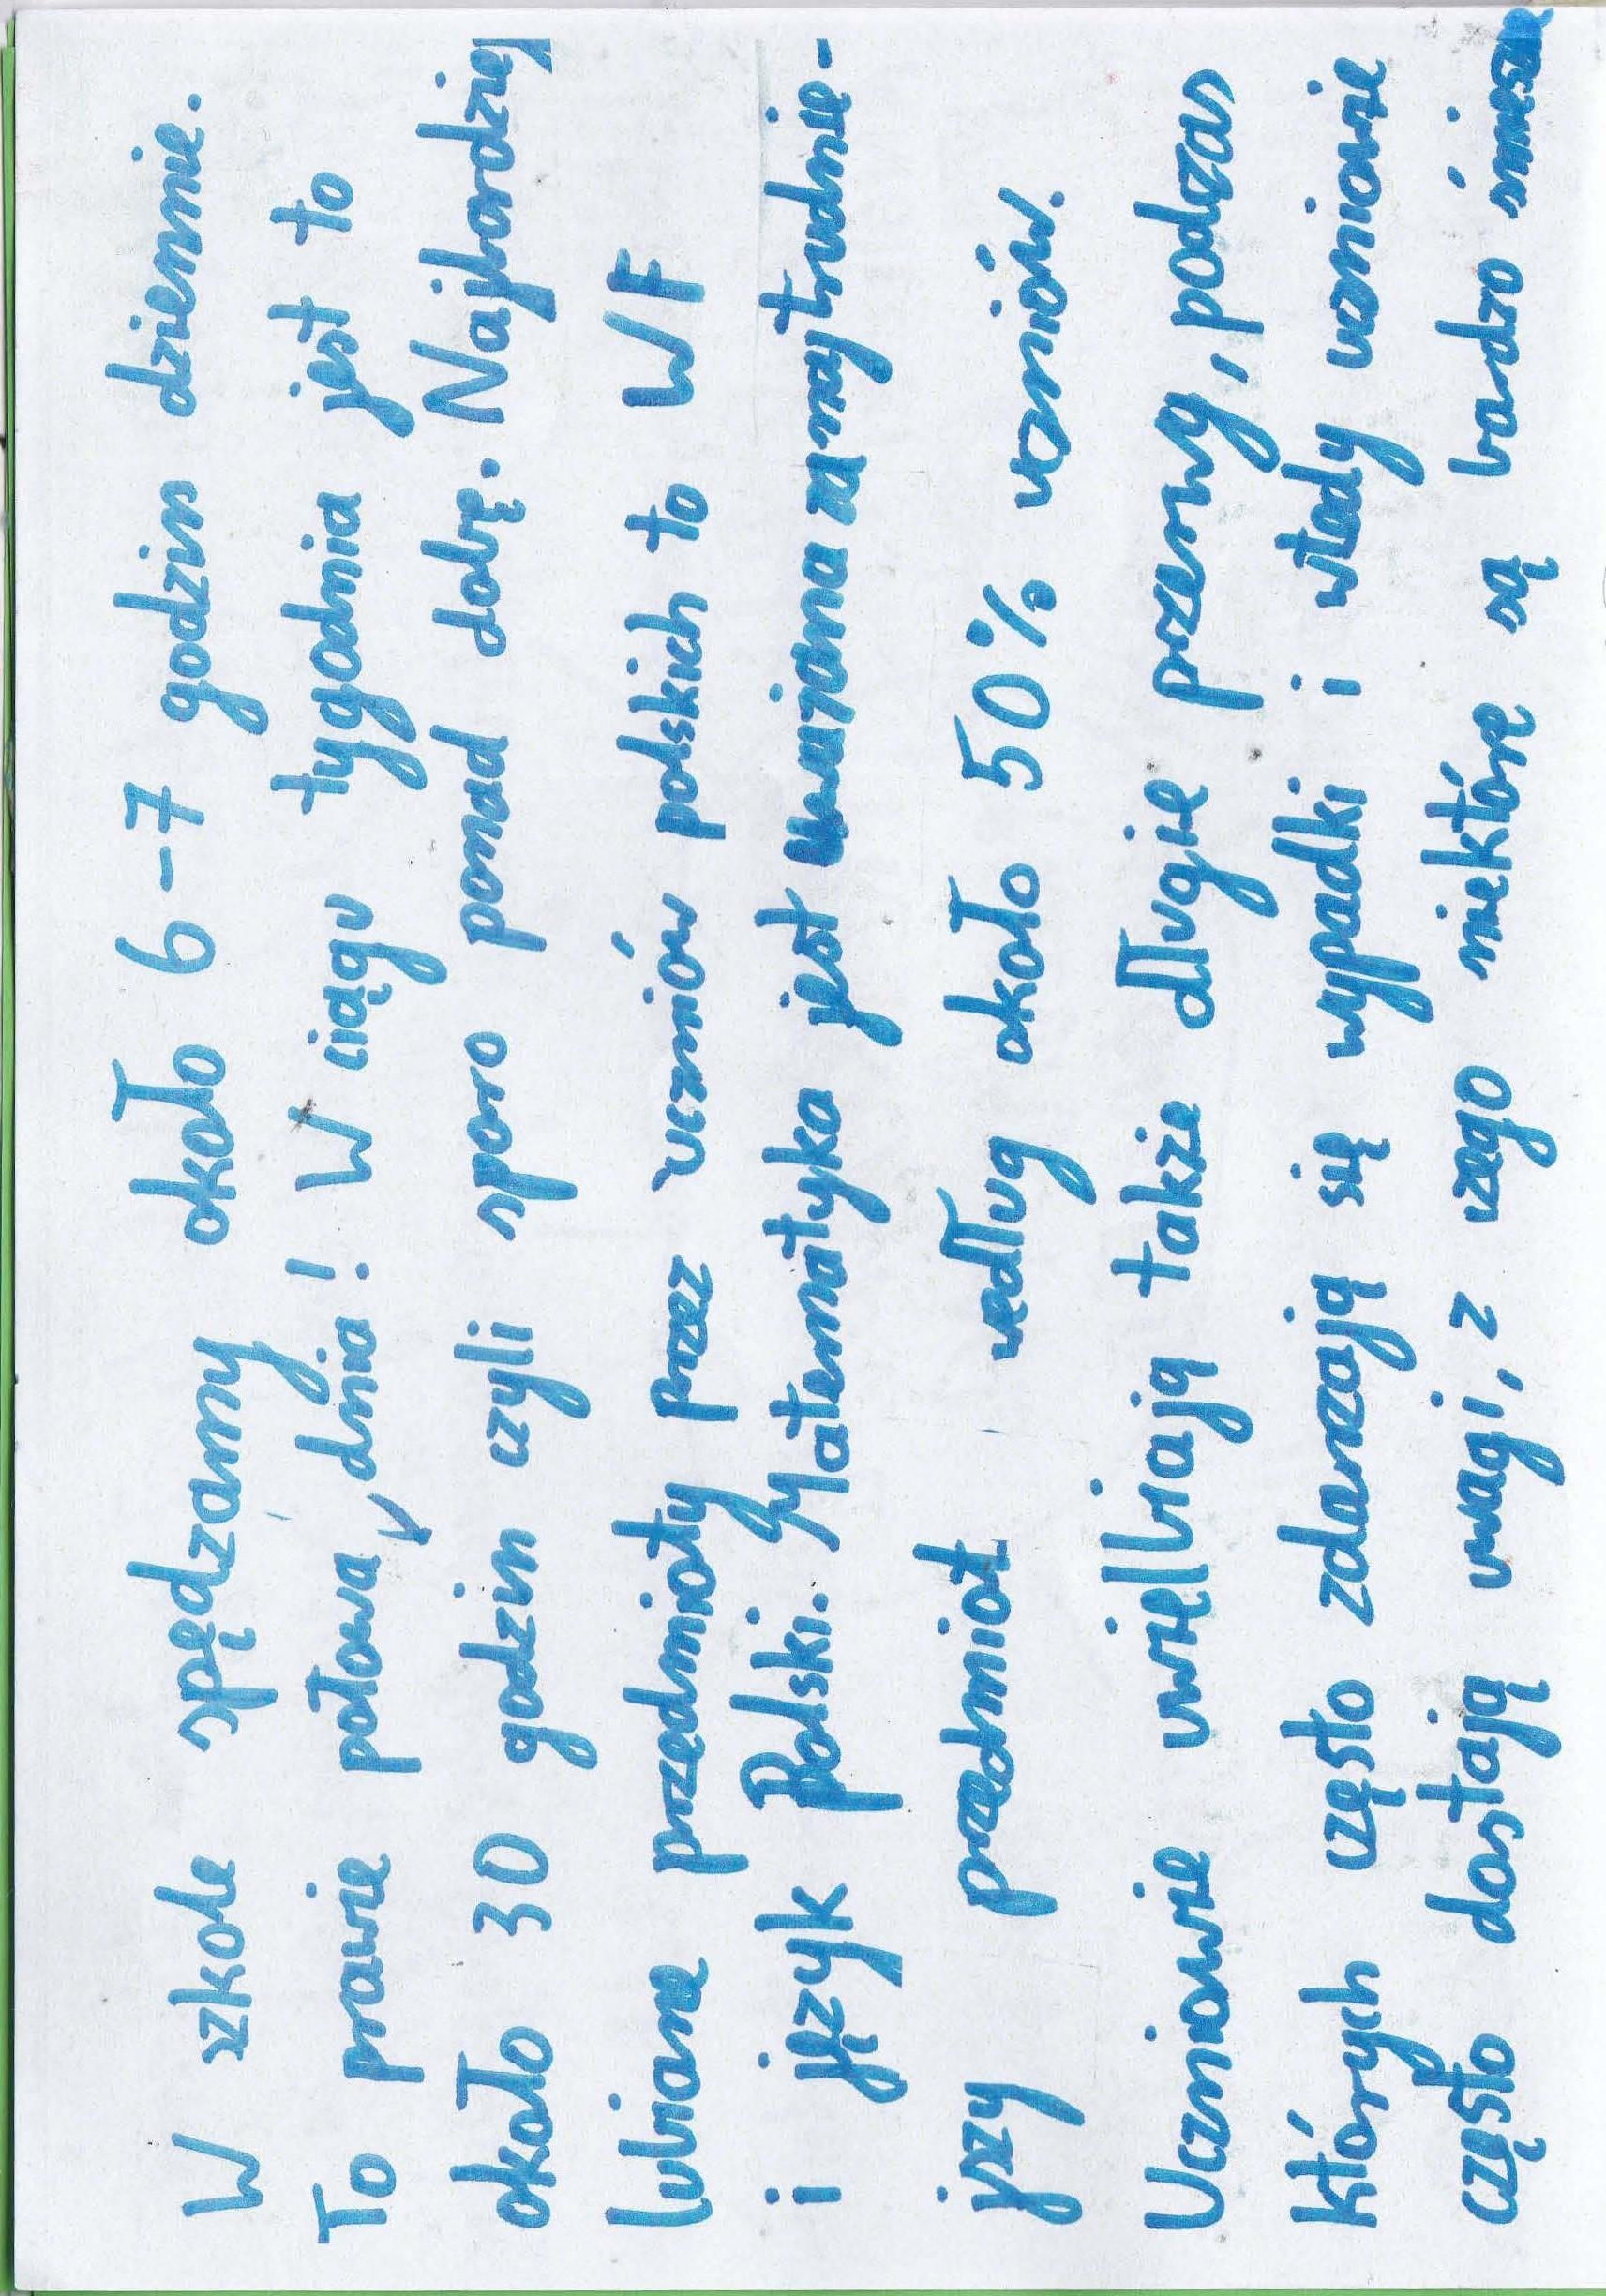 W szkole spędzamy około 6-7 godzin dziennie.
To prawie połowa dnia! W ciągu tygodnia jest to
około 30 godzin czyli sporo ponad dobę. Najbardziej
lubiane przedmioty przez uczniów polskich to WF
i język Polski. Matematyka jest uważana za najtrudnie-
jszy przedmiot według około 50% uczniów.
Uczniowie uwielbiają także długie przerwy, podczas
których często zdarzają się wypadki i wtedy uczniowie
często dostają uwagi, z czego niektóre są bardzo śmieszne